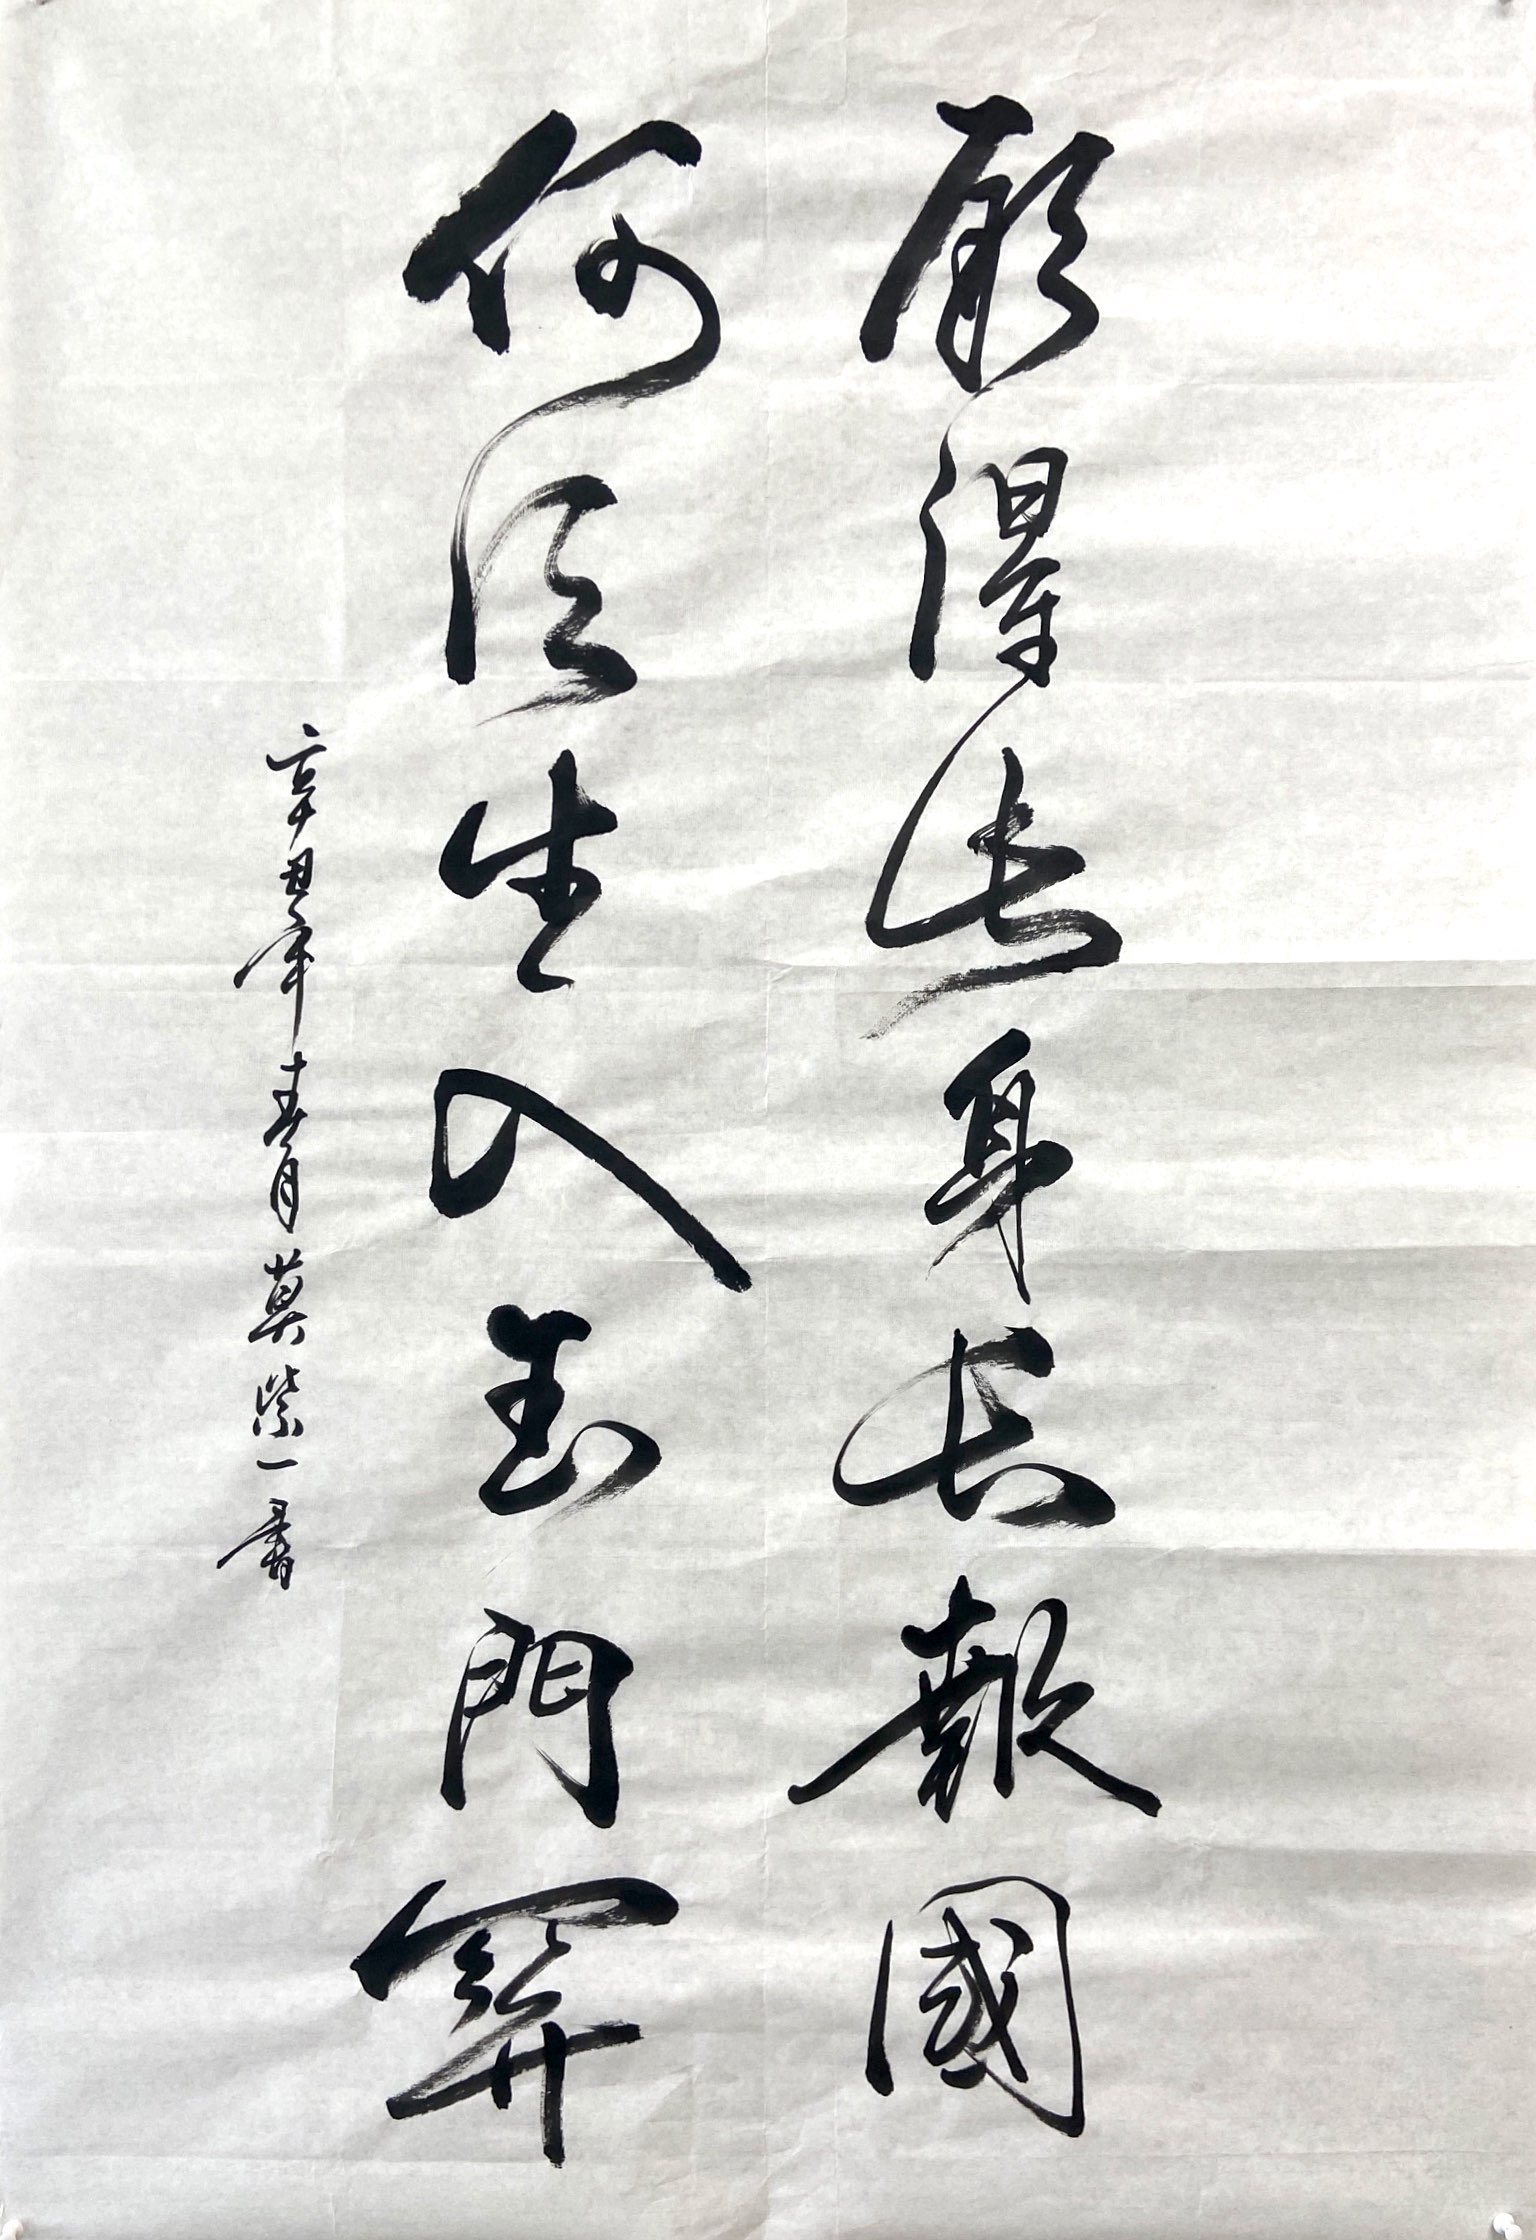 願得此身長報國
何須生入玉門關
辛丑年春月莫紫一書